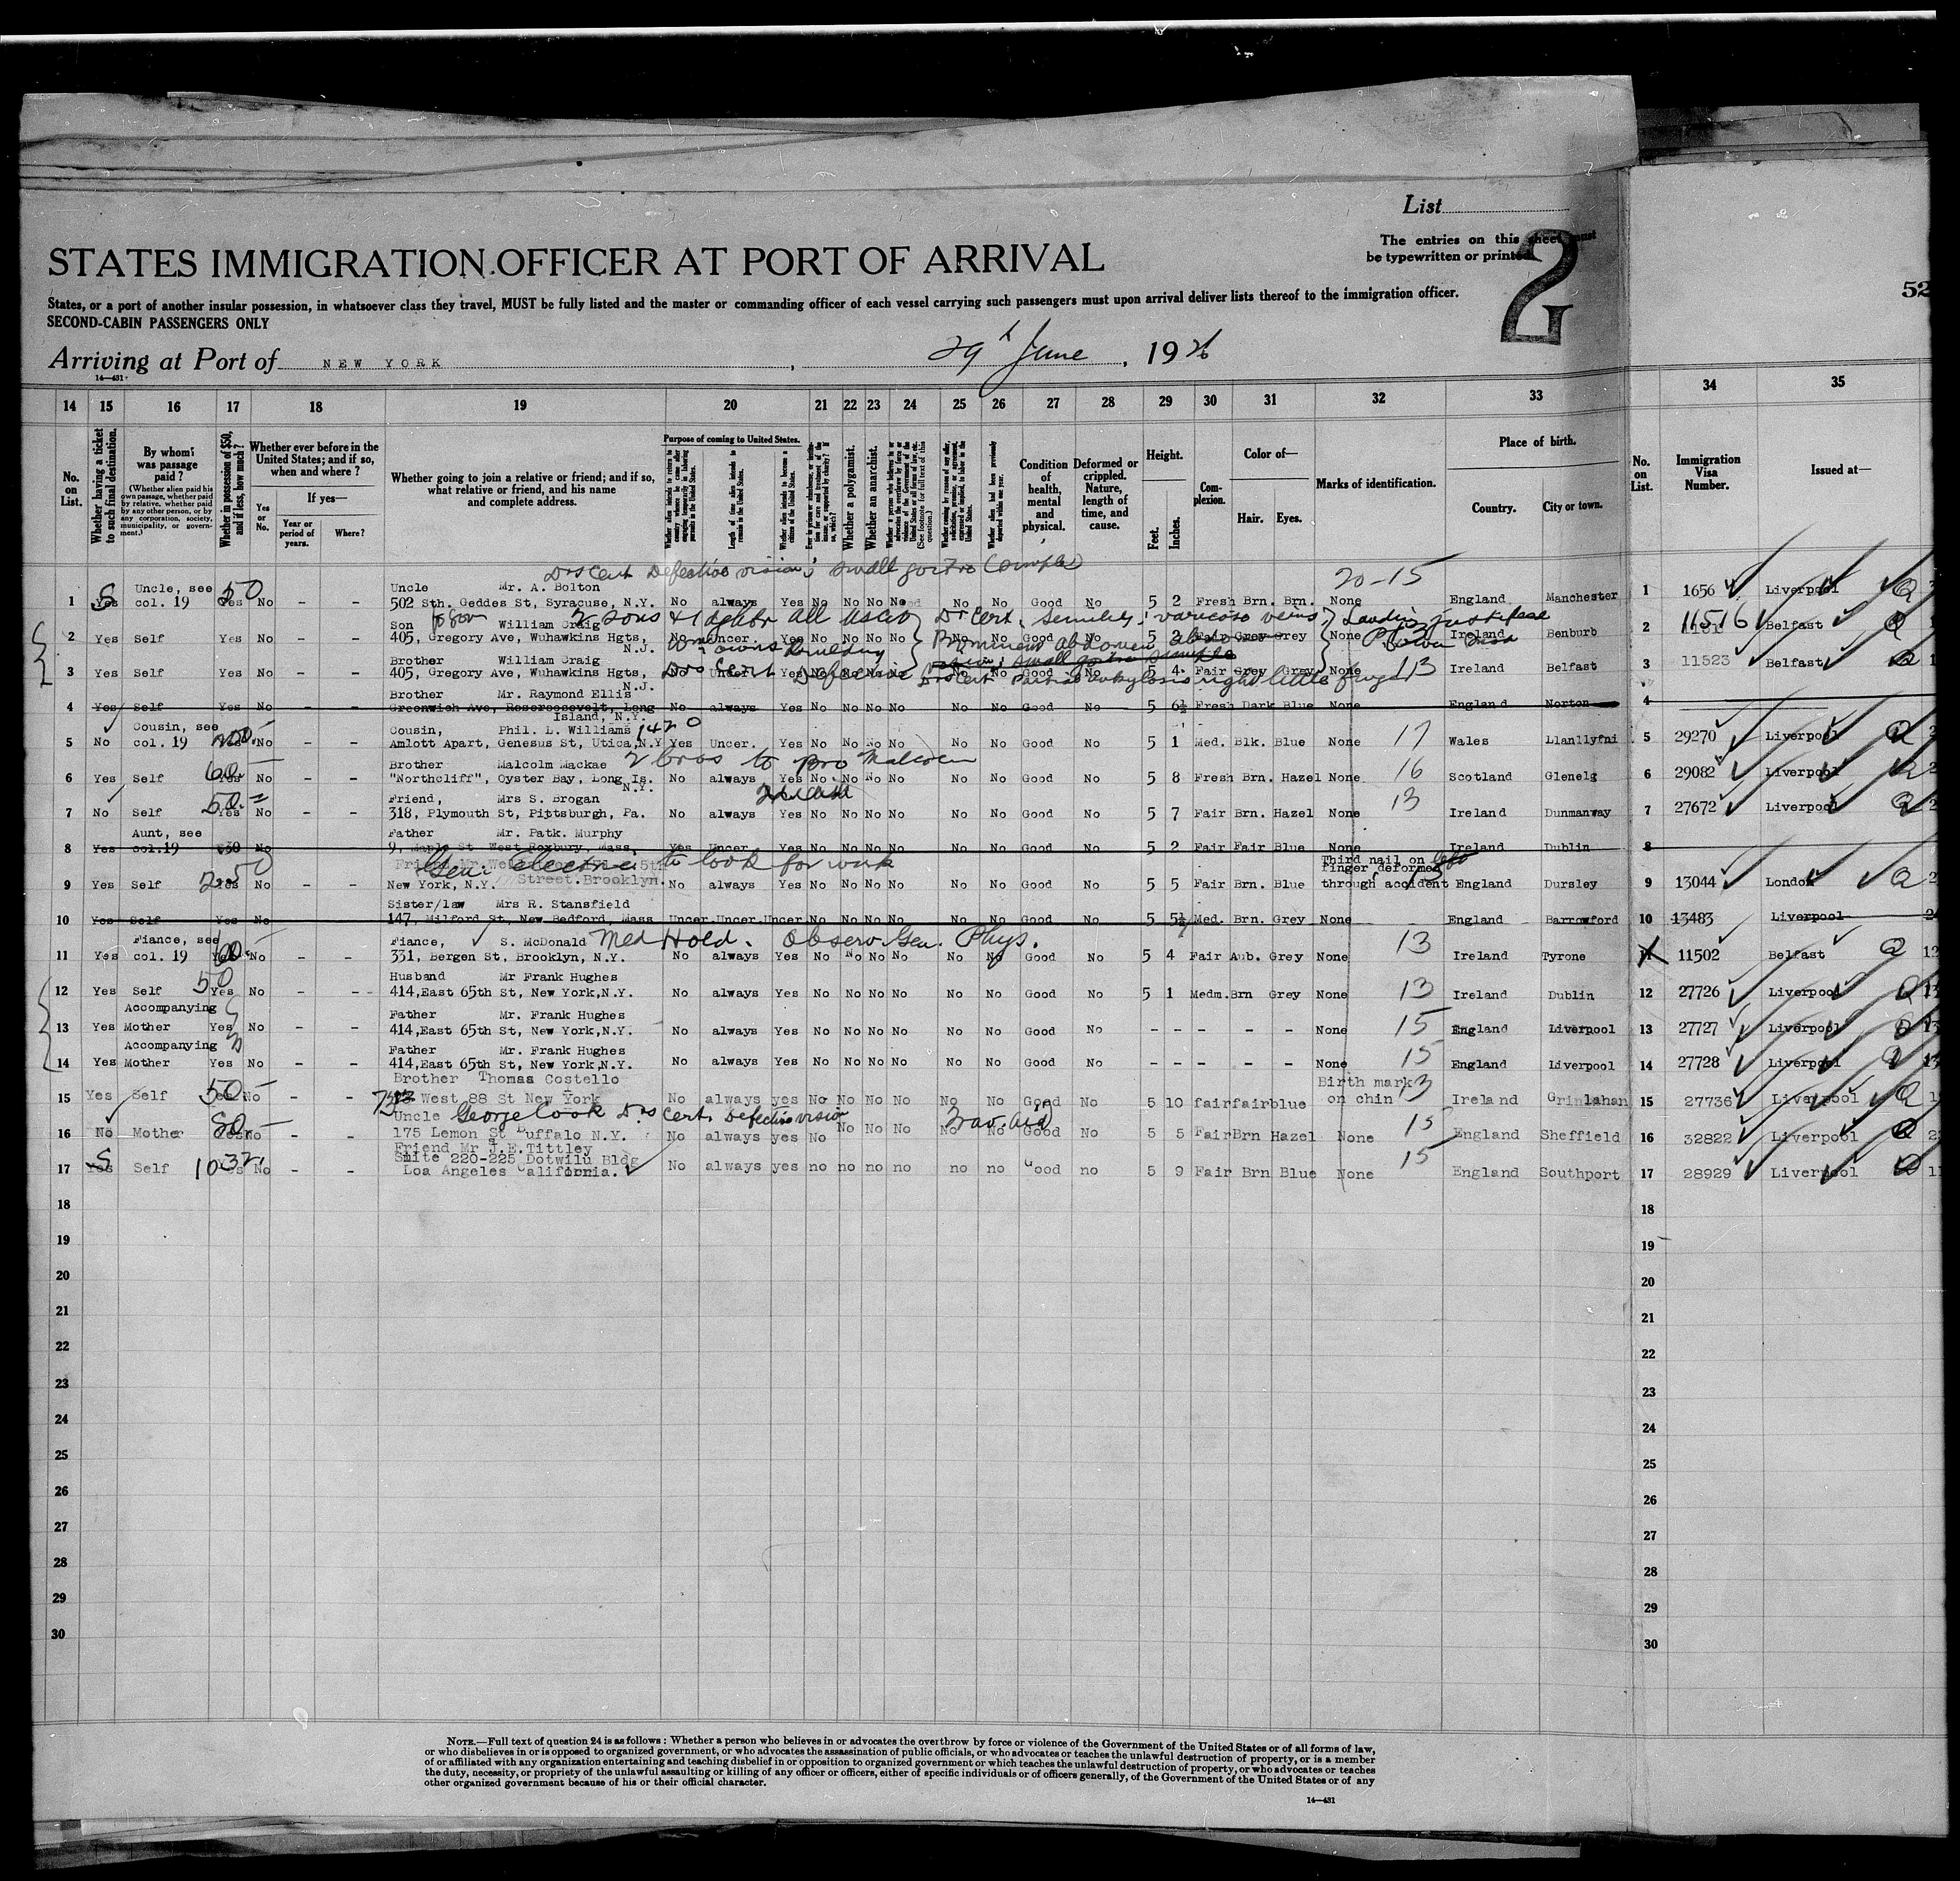 List
The entries on this sheet must
be typewritten or printed.
2
STATES IMMIGRATION OFFICER AT PORT OF ARRIVAL
52
States, or a port of another insular possession, in whatsoever class they travel, MUST be fully listed and the master or commanding officer of each vessel carrying such passengers must upon arrival deliver lists thereof to the immigration officer.
SECOND-CABIN PASSENGERS ONLY
Arriving at Port of NEW YORK, 29th June, 1926
14—431
14 15 16 17 18 19 20 21 22 23 24 25 26 27 28 29 30 31 32 33 34 35
No. on List.
Whether having a ticket to such final destination.
By whom was passage paid?
(Whether alien paid his own passage, whether paid by relative, whether paid by any other person, or by any corporation, society, municipality, or government.)
Whether in possession of $50, and if less, how much?
Whether ever before in the United States; and if so, when and where?
Yes or No.
If yes—
Year or period of years.
Where?
Whether going to join a relative or friend; and if so, what relative or friend, and his name and complete address.
Purpose of coming to United States.
Length of time alien intends to remain in the United States.
Whether alien intends to become a citizen of the United States.
Whether a polygamist.
Whether an anarchist.
(See footnote for full text of this question.)
Condition of health, mental and physical.
Deformed or crippled. Nature, length of time, and cause.
Height.
Feet. Inches.
Complexion.
Color of—
Hair. Eyes.
Marks of identification.
Place of birth.
Country. City or town.
No. on List.
Immigration Visa Number.
Issued at—
Drs Cert Defective vision; small goitre (simple)
Uncle, see 50 Uncle Mr. A. Bolton 20-15
1 Yes col. 19 Yes No – – 502 Sth. Geddes St, Syracuse, N.Y. No always Yes No No No No No No Good No 5 2 Fresh Brn. Brn. None England Manchester 1 1656 Liverpool
Son William Craig 2 sons + 1 daghtr all Dr Cert. Senility; varicose veins;
2 Yes Self Yes No – – 405, Gregory Ave, Wuhawkins Hgts, N.J. No Uncer. Yes No No No No No No Good No 5 2 Fair Grey Grey None Ireland Benburb 2 11516 Belfast
Prominent abdomen
Brother William Craig
3 Yes Self Yes No – – 405, Gregory Ave, Wuhawkins Hgts, N.J. No Uncer. Yes No No No No No No Good No 5 4 Fair Grey Grey None 13 Ireland Belfast 3 11523 Belfast
Drs Cert Defective
Dr Cert Partial ankylosis right little finger
Brother Mr. Raymond Ellis
4 Yes Self Yes No – – Greenwich Ave, Roseroosevelt, Long Island, N.Y. No always Yes No No No No No No Good No 5 6½ Fresh Dark Blue None England Norton 4
Cousin, see Cousin, Phil. L. Williams
5 No col. 19 No – – Amlott Apart, Genesus St, Utica, N.Y Yes Uncer. Yes No No No No No No Good No 5 1 Med. Blk. Blue None 17 Wales Llanllyfni 5 29270 Liverpool
Brother Malcolm Mackae 2 bros to Bro Malcolm
6 Yes Self 60 Yes No – – "Northcliff", Oyster Bay, Long Is. N.Y. No always Yes No No No No No No Good No 5 8 Fresh Brn. Hazel None 16 Scotland Glenelg 6 29082 Liverpool
50 Friend, Mrs S. Brogan
7 No Self Yes No – – 318, Plymouth St, Pittsburgh, Pa. No always Yes No No No No No No Good No 5 7 Fair Brn. Hazel None 13 Ireland Dunmanway 7 27672 Liverpool
Aunt, see Father Mr. Patk. Murphy
8 Yes col.19 $30 No – – 9, Maple St West Roxbury, Mass. Yes Uncer. Yes No No No No No No Good No 5 2 Fair Fair Blue None Ireland Dublin 8
Gen. Electric to look for work Third nail on left
250 Street. Brooklyn. finger deformed
9 Yes Self Yes No – – New York, N.Y. No always Yes No No No No No No Good No 5 5 Fair Brn. Blue through accident England Dursley 9 13044 London
Sister/law Mrs R. Stansfield
10 Yes Self Yes No 147, Milford St, New Bedford, Mass Uncer. Uncer. Uncer. No No No No No No Good No 5 5½ Med. Brn. Grey None England Barrowford 10 13483 Liverpool
Fiance, see Fiance, S. McDonald Med Hold. Observ. Gen. Phys. 13
11 Yes col. 19 60 No – – 331, Bergen St, Brooklyn, N.Y. No always Yes No No No No No No Good No 5 4 Fair Aub. Grey None Ireland Tyrone 11 11502 Belfast
50 Husband Mr Frank Hughes
12 Yes Self Yes No – – 414, East 65th St, New York, N.Y. No always Yes No No No No No No Good No 5 1 Medm. Brn Grey None 13 Ireland Dublin 12 27726 Liverpool
Accompanying Father Mr. Frank Hughes
13 Yes Mother Yes No – – 414, East 65th St, New York, N.Y. No always Yes No No No No No No Good No – – – – – None 15 England Liverpool 13 27727 Liverpool
Accompanying Father Mr. Frank Hughes
14 Yes Mother Yes No – – 414, East 65th St, New York, N.Y. No always Yes No No No No No No Good No – – – – – None 15 England Liverpool 14 27728 Liverpool
Brother Thomas Costello Birth mark
15 Yes Self 50 No – – West 88 St New York No always yes No No No No No No Good No 5 10 fair fair blue on chin 13 Ireland Grinlahan 15 27736 Liverpool
Uncle George Cook Drs Cert. Defective vision Trav. Aid
16 No Mother 80 No – – 175 Lemon St Buffalo N.Y. No always yes No No No No No No Good No 5 5 Fair Brn Hazel None 15 England Sheffield 16 32822 Liverpool
Friend Mr J.E. Tittley
Suite 220-225 Dotwilu Bldg
17 Yes Self 1032 Yes No – – Loa Angeles California. No always yes no no no no no no Good no 5 9 Fair Brn Blue None 15 England Southport 17 28929 Liverpool
18 18
19 19
20 20
21 21
22 22
23 23
24 24
25 25
26 26
27 27
28 28
29 29
30 30
NOTE.—Full text of question 24 is as follows: Whether a person who believes in or advocates the overthrow by force or violence of the Government of the United States or of all forms of law,
or who disbelieves in or is opposed to organized government, or who advocates the assassination of public officials, or who advocates or teaches the unlawful destruction of property, or is a member
of or affiliated with any organization entertaining and teaching disbelief in or opposition to organized government or which teaches the unlawful destruction of property, or who advocates or teaches
the duty, necessity, or propriety of the unlawful assaulting or killing of any officer or officers, either of specific individuals or of officers generally, of the Government of the United States or of any
other organized government because of his or their official character.
14—431